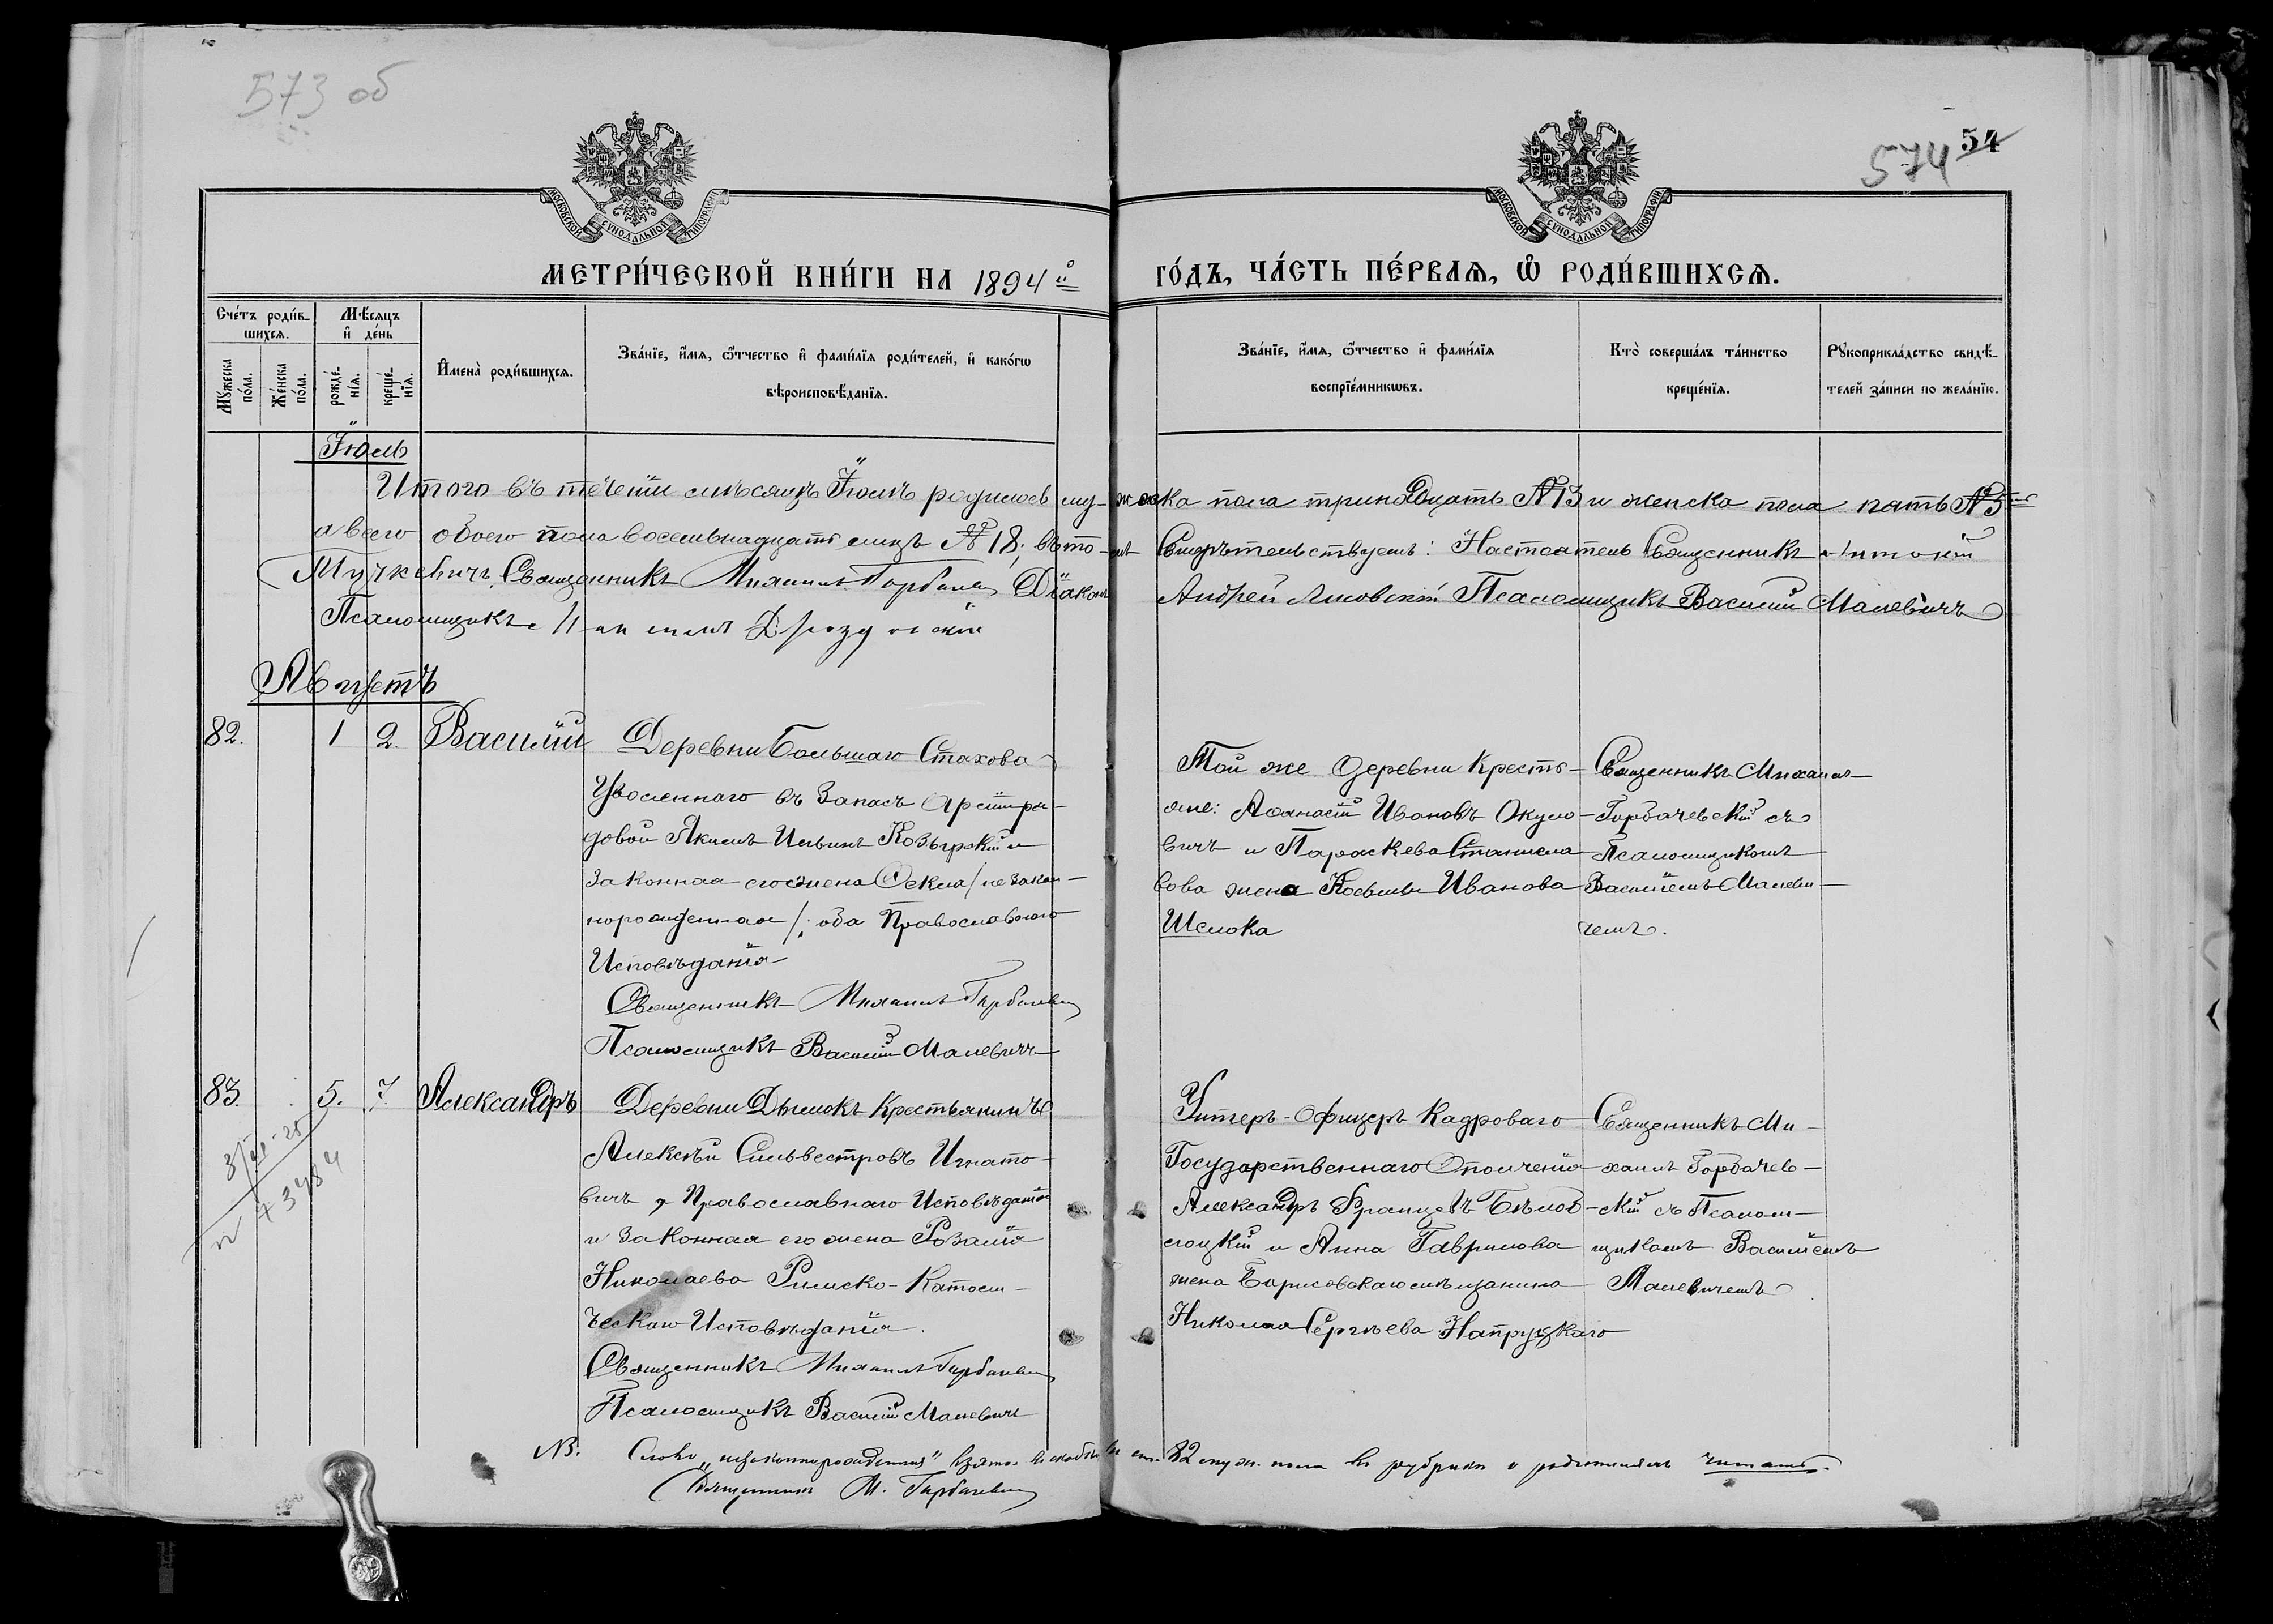 573 об
574 54
МОСКОВСКОЙ СУНОДАЛЬНОЙ ТИПОГРАФІИ
МОСКОВСКОЙ СУНОДАЛЬНОЙ ТИПОГРАФІИ
МЕТРИ́ЧЕСКОЙ КНИ́ГИ НА 1894й ГО́ДЪ, ЧА́СТЬ ПЕ́РВАЯ, Ѿ РОДИ́ВШИХСЯ.
Сче́тъ роди́вшихся.
Мꙋжеска по́ла.
Же́нска по́ла.
Мѣ́сяцъ и҆ де́нь
рожде́нїя.
креще́нїя.
И҆мена̀ роди́вшихся.
Зва́нїе, и҆́мя, ѻ҆́тчество и҆ фами́лїя роди́телей, и҆ како́гѡ вѣроисповѣ́данїя.
Зва́нїе, и҆́мя, ѻ҆́тчество и҆ фами́лїя воспрїе́мникѡвъ.
Кто̀ соверша́лъ та́инство креще́нїя.
Рꙋкоприкла́дство свидѣ́телей за́писи по жела́нїю.
Іюль
Итого въ теченіи мѣсяцѣ Іюлѣ родилось мужеска пола тринадцать №13 и женска пола пять №5
а всего обоего пола восемьнадцать лицъ №18, въ томъ Свидѣтельствуемъ: Настоятель Священникъ Антоній
Мучкевичъ, Священникъ Михаилъ Горбачев Діаконъ Андрей Лисовскій Псаломщикъ Василій Малевичъ
Псаломщикъ
Августъ
82. 1 2. Василій
Деревни Большаго Стахова
Уволеннаго въ Запасъ
довой Якимъ Ильинъ Козырскій и
законная его жена Ѳекла / не закон-
норожденная /; оба Православнаго
Исповѣданія
Священникъ Михаилъ Горбачев
Псаломщикъ Василій Малевичъ
Той же деревни Кресть-
яне: Аѳанасій Ивановъ Окуло-
вичъ и Параскева Станисла-
вова жена Косьмы Иванова
Шелока
Священникъ Михаилъ
Горбачевскій съ
Псаломщикомъ
Василіемъ Малеви-
чемъ.
83. 5. 7. Александръ
Деревни Дымокъ Крестьянинъ
Алексѣй Сильвестровъ Игнато-
вичъ Православнаго Исповѣданія
и законная его жена Розалія
Николаева Римско-Католи-
ческаго Исповѣданія.
Священникъ Михаилъ Горбачев
Псаломщикъ Василій Малевичъ
Унтеръ-Офицеръ Кадроваго
Государственнаго Ополченія
Александръ Францевъ Бѣлоб-
лоцкій и Анна Гаврилова
жена Борисовскаго мѣщанина
Николая Сергѣева Напруцкаго
Священникъ Ми-
хаилъ Горбачев-
скій съ Псалом-
щикомъ Василіемъ
Малевичемъ
NB. Слово „незаконнорожденная" взято въ скобки въ ст. 82 муж. пола въ рубрикѣ о родителяхъ читать.
Священникъ М. Горбачев